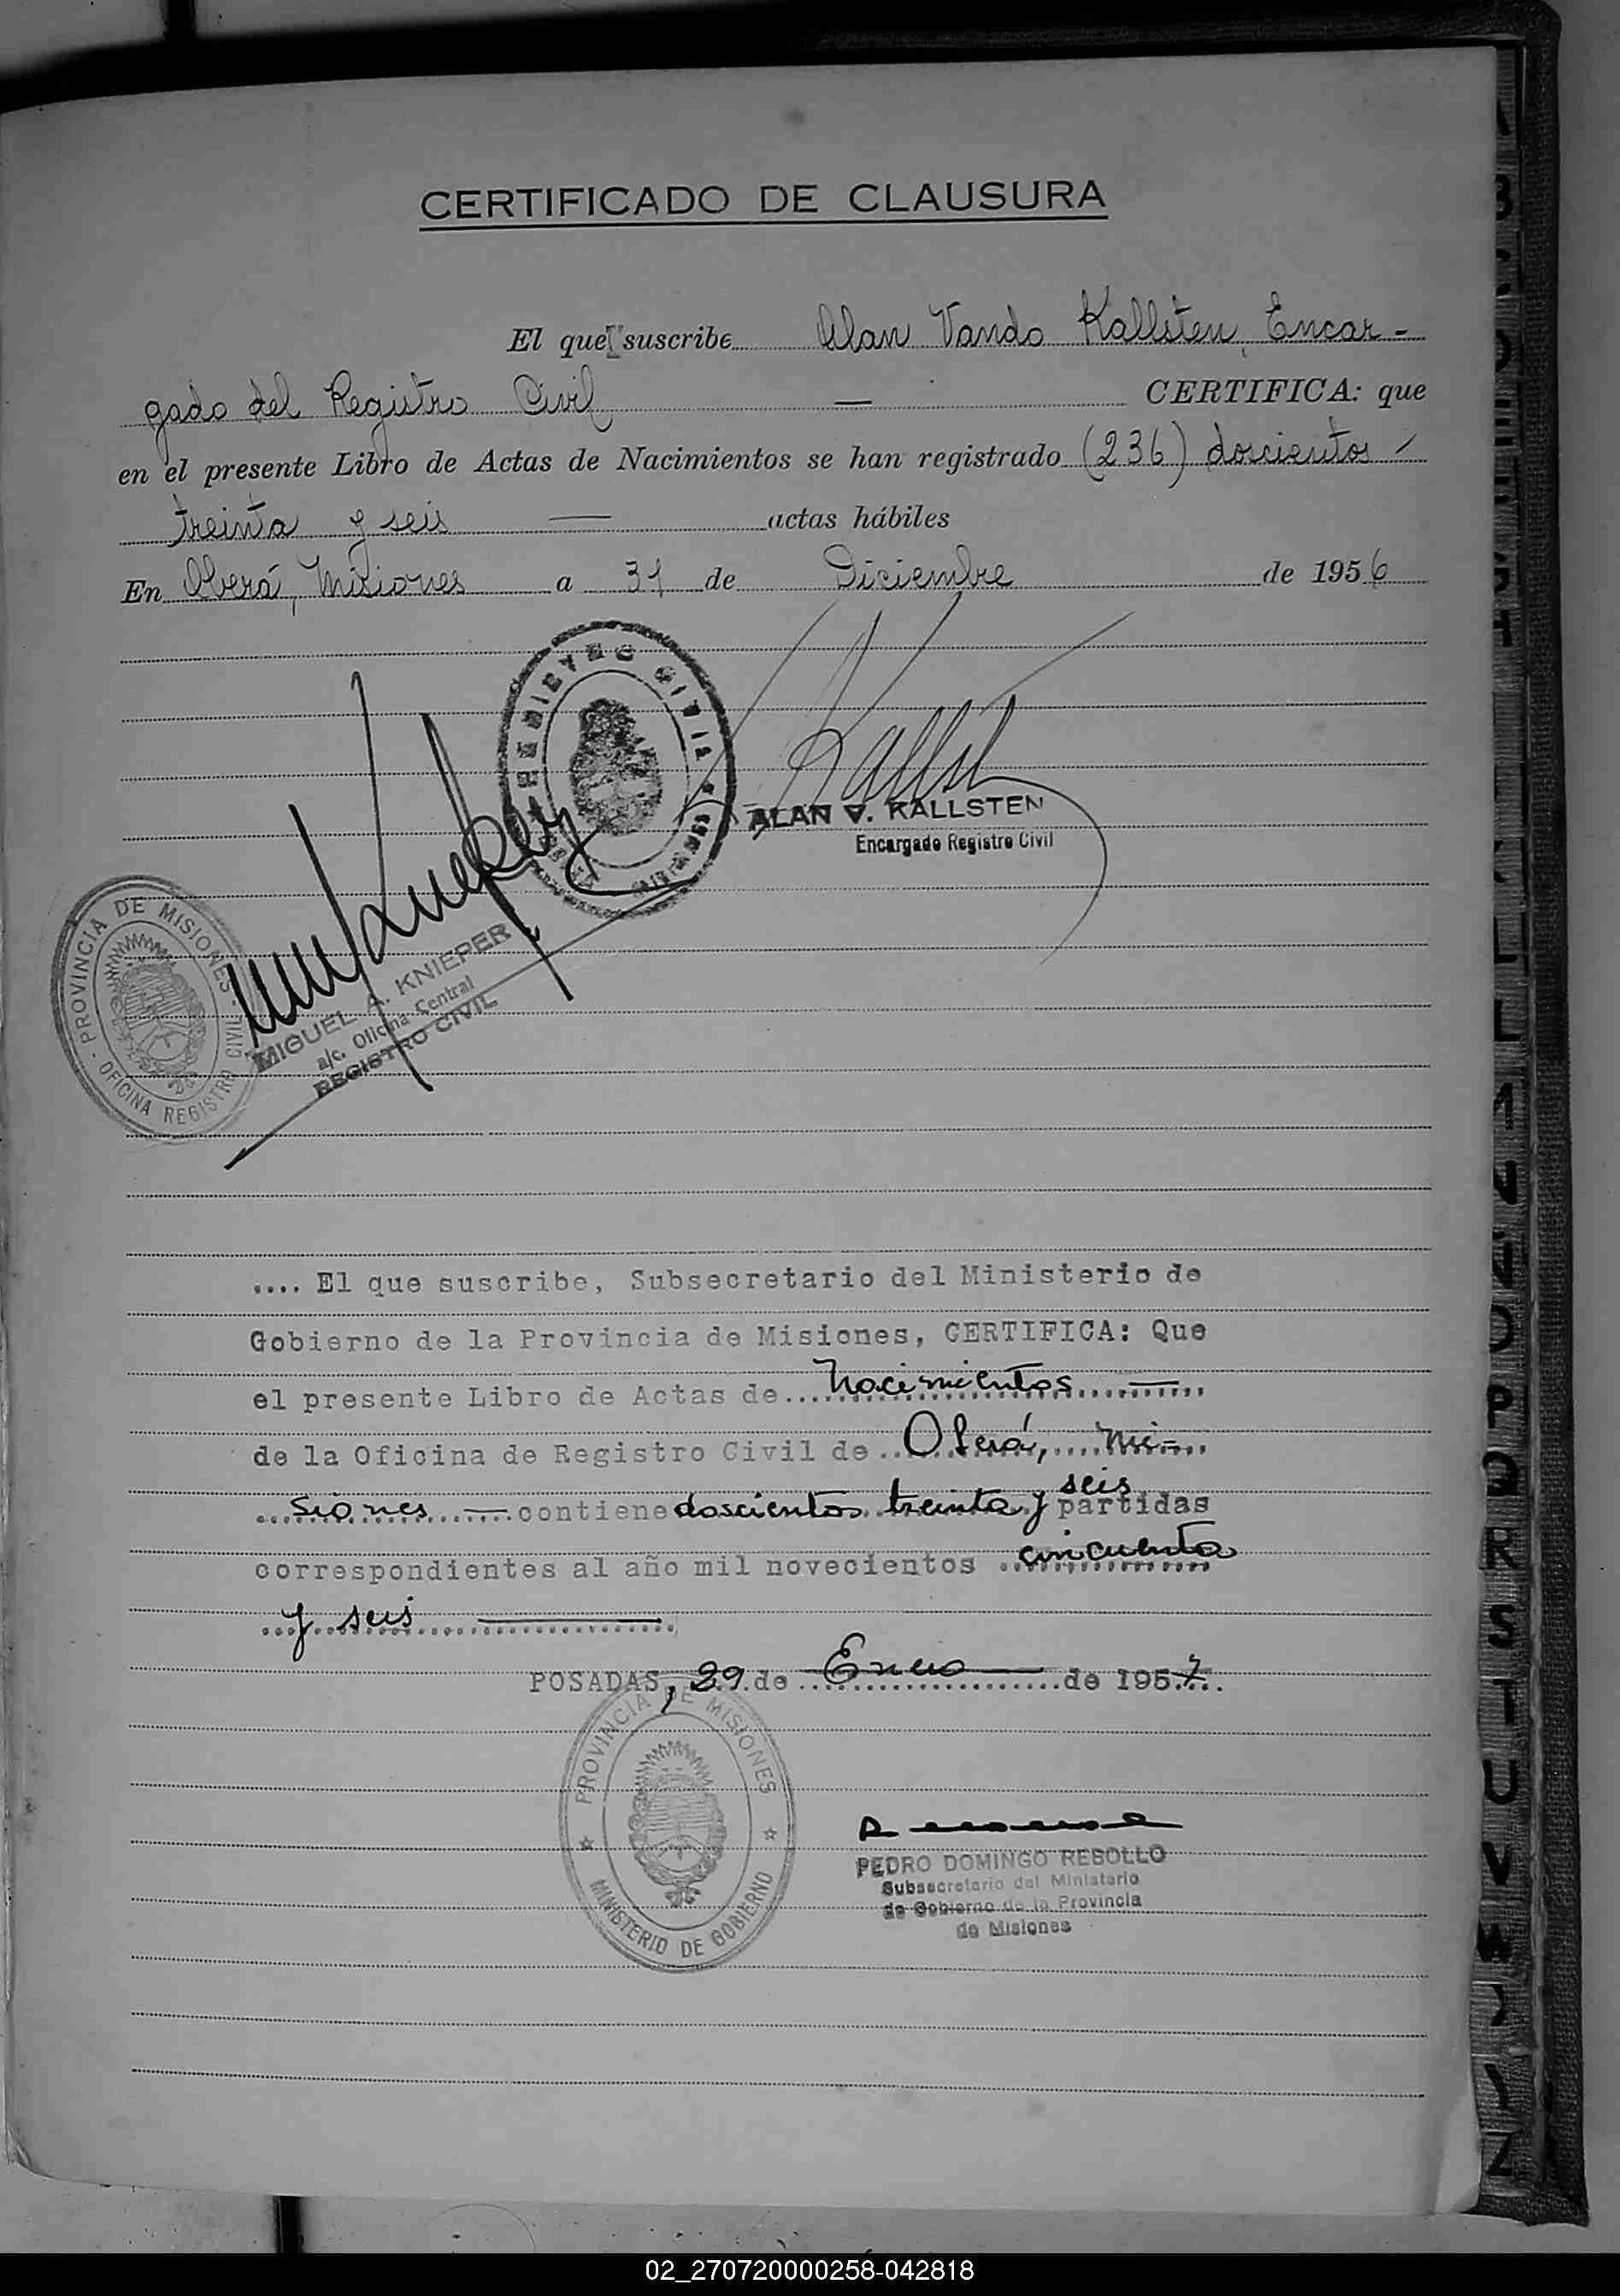 CERTIFICADO DE CLAUSURA
El que suscribe Alan Vando Kallsten, Encar-
gado del Registro Civil — CERTIFICA: que
en el presente Libro de Actas de Nacimientos se han registrado (236) doscientos
treinta y seis — actas hábiles
En Oberá, Misiones a 31 de Diciembre de 1956
REGISTRO CIVIL
Kallsten
ALAN V. KALLSTEN
Encargado Registro Civil
PROVINCIA DE MISIONES - OFICINA REGISTRO CIVIL
MIGUEL A. KNIEPER
a/c. Oficina Central
REGISTRO CIVIL
.... El que suscribe, Subsecretario del Ministerio de
Gobierno de la Provincia de Misiones, CERTIFICA: Que
el presente Libro de Actas de Nacimientos —
de la Oficina de Registro Civil de Oberá, Mi-
siones — contiene doscientos treinta y seis partidas
correspondientes al año mil novecientos cincuenta
y seis —
POSADAS, 29 de Enero — de 1957
PROVINCIA DE MISIONES
MINISTERIO DE GOBIERNO
PEDRO DOMINGO REBOLLO
Subsecretario del Ministerio
de Gobierno de la Provincia
de Misiones
02_270720000258-042818